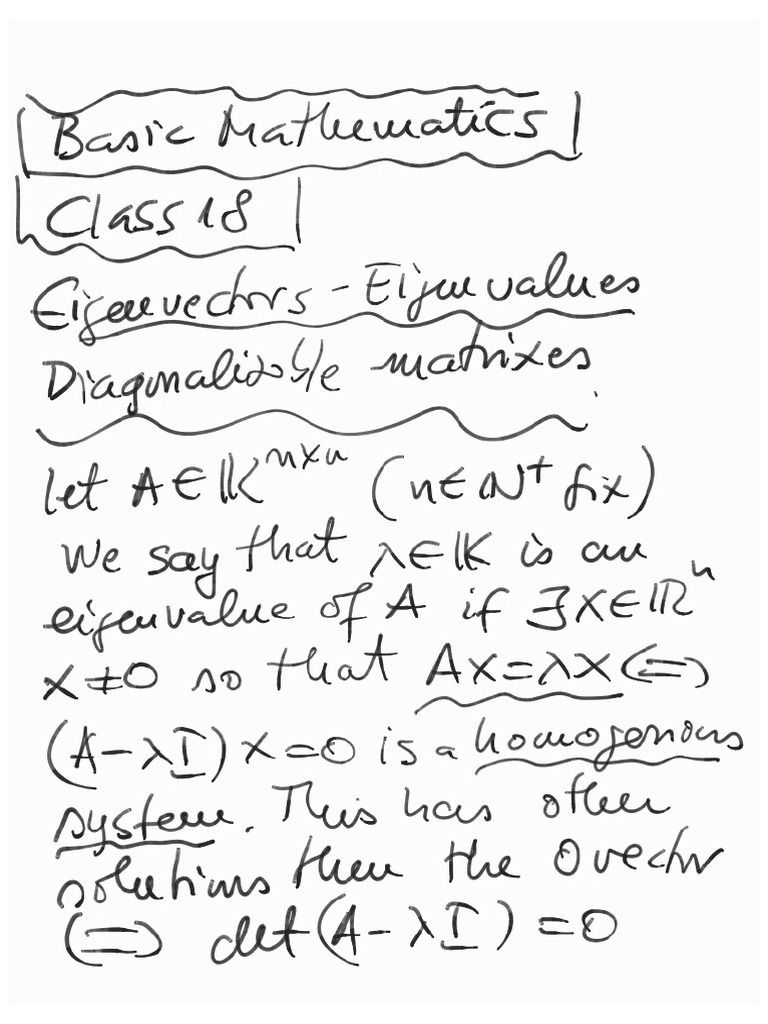 Basic Mathematics
Class 18
Eigenvectors - Eigenvalues
Diagonalizable matrixes.
let A∈𝕂ⁿˣⁿ (n∈ℕ⁺ fix)
We say that λ∈𝕂 is an
eigenvalue of A if ∃x∈ℝⁿ
x≠0 so that Ax=λx ⟺
(A-λI)x=0 is a homogenous
system. This has other
solutions then the 0 vector
⟺ det(A-λI)=0